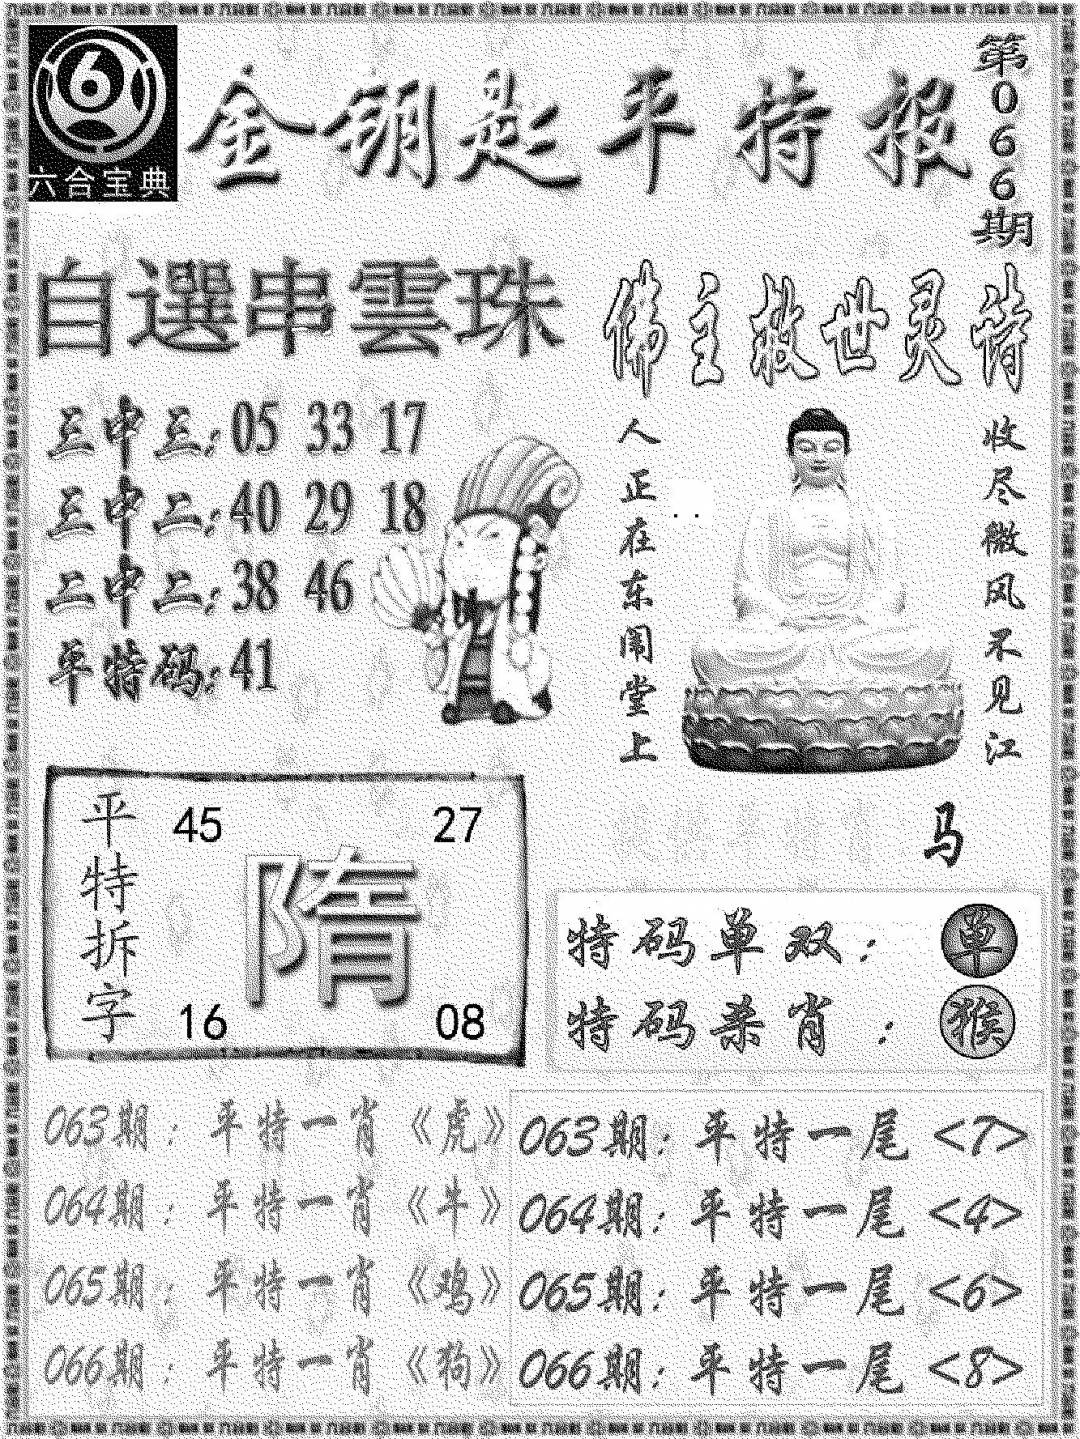 6
六合宝典
金钥匙平特报
第066期
自選串雲珠
三中三：05 33 17
三中二：40 29 18
二中二：38 46
平特码：41
佛主救世灵诗
收尽微风不见江
人正在东闹堂上
马
平特拆字
45 27
隋
16 08
特码单双： 单
特码杀肖 ： 猴
063期：平特一肖《虎》
064期：平特一肖《牛》
065期：平特一肖《鸡》
066期：平特一肖《狗》
063期：平特一尾<7>
064期：平特一尾<4>
065期：平特一尾<6>
066期：平特一尾<8>